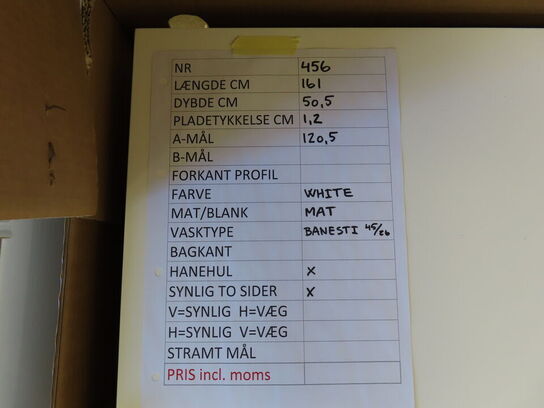 NR 456
LÆNGDE CM 161
DYBDE CM 50,5
PLADETYKKELSE CM 1,2
A-MÅL 120,5
B-MÅL
FORKANT PROFIL
FARVE WHITE
MAT/BLANK MAT
VASKTYPE BANESTI 45/26
BAGKANT
HANEHUL X
SYNLIG TO SIDER X
V=SYNLIG H=VÆG
H=SYNLIG V=VÆG
STRAMT MÅL
PRIS incl. moms